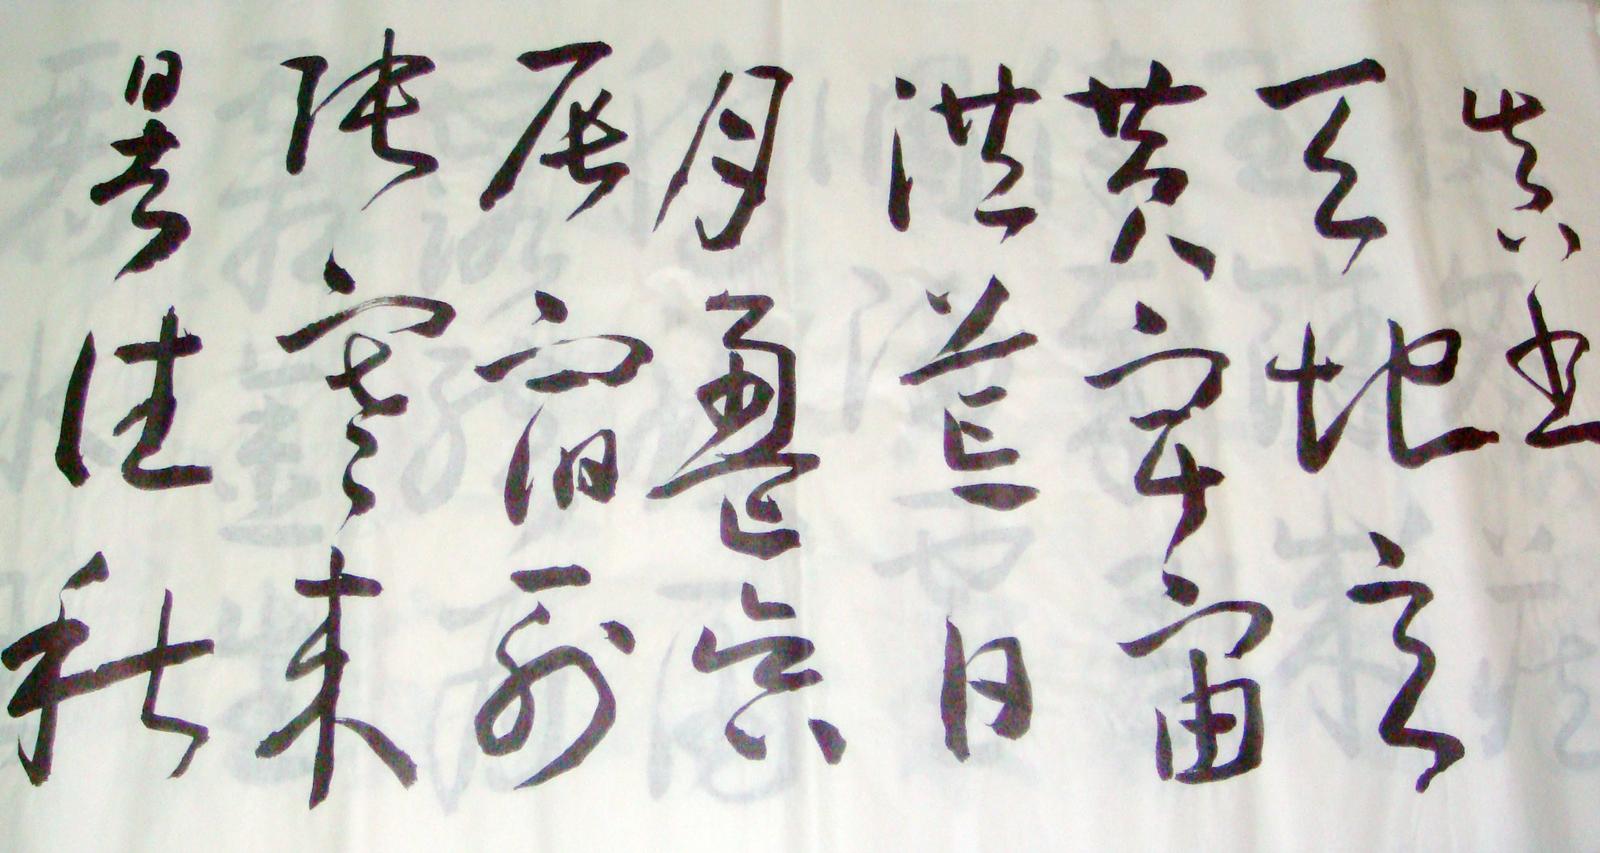 真書
天地玄
黄宇宙
洪荒日
月盈昃
辰宿列
張寒来
暑往秋